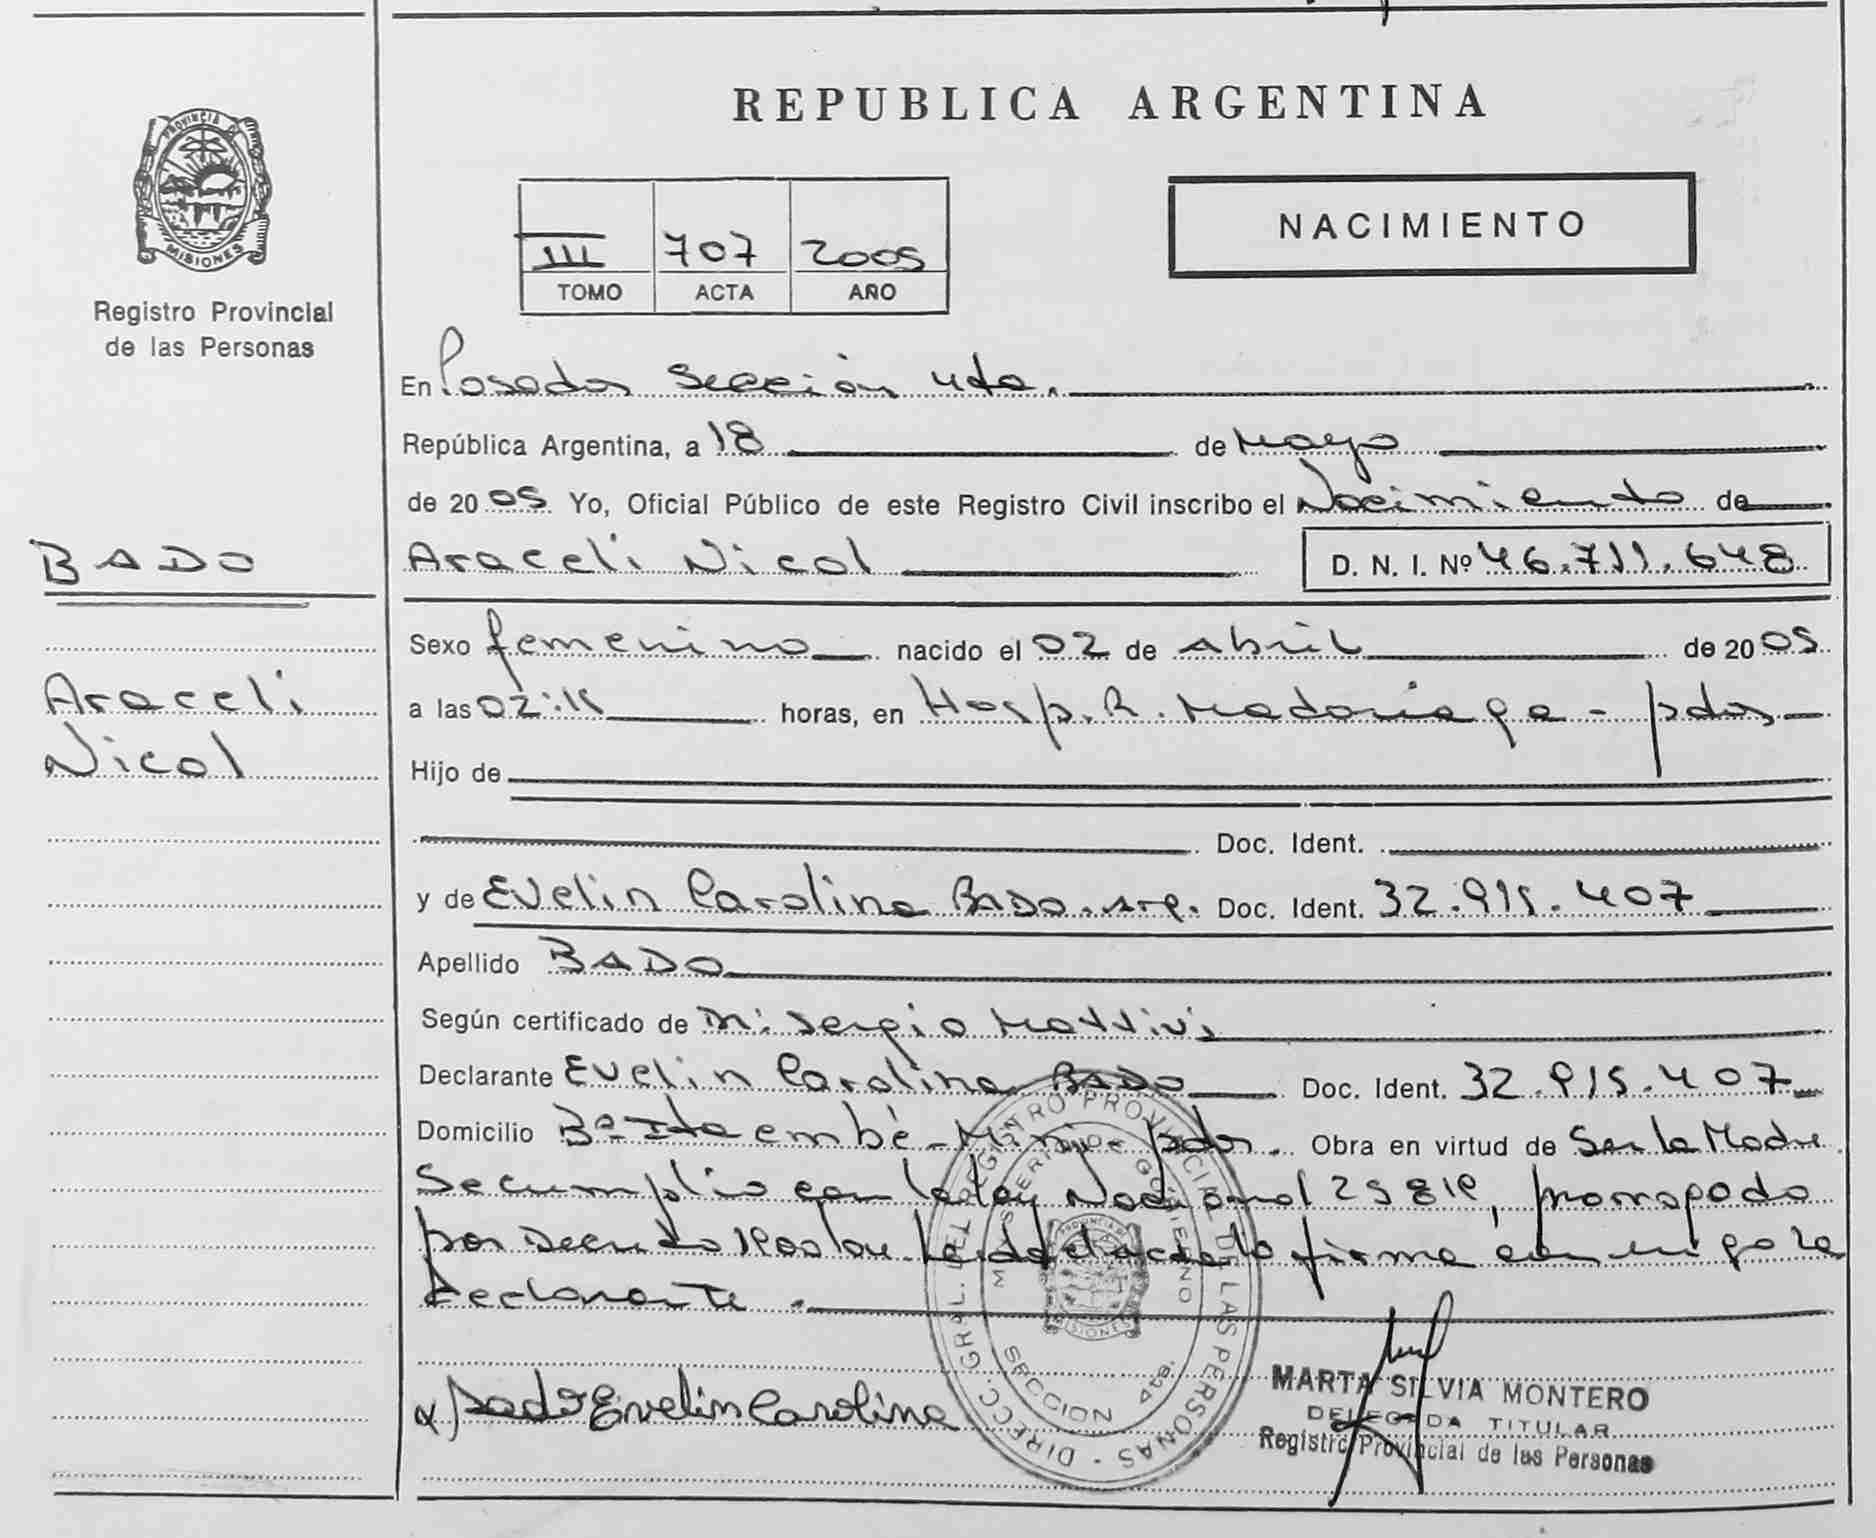 REPUBLICA ARGENTINA
PROVINCIA DE
MISIONES
Registro Provincial
de las Personas
NACIMIENTO
III 707 2005
TOMO ACTA AÑO
En Posadas Sección 4ta.
República Argentina, a 18 de Mayo
de 2005 Yo, Oficial Público de este Registro Civil inscribo el Nacimiento de
BADO
Araceli Nicol D. N. I. Nº 46.711.648
Sexo femenino nacido el 02 de Abril de 2005
Araceli
Nicol
a las 02:15 horas, en Hosp. R. Madariaga - pdas
Hijo de
Doc. Ident.
y de Evelin Carolina BADO. arg. Doc. Ident. 32.915.407
Apellido BADO
Según certificado de Sergio Mattivi
Declarante Evelin Carolina BADO Doc. Ident. 32.915.407
Domicilio Bº Itaembé - Mini - pdas. Obra en virtud de Ser la Madre
Se cumplio con la ley Nacional 25819, prorrogada
por Decreto Leida el acta la firma conmigo la
Declarante.
DIRECC. GRAL. DEL REGISTRO PROVINCIAL DE LAS PERSONAS
MINISTERIO DE GOBIERNO
PROVINCIA DE
MISIONES
SECCION 4ta.
x Bado Evelin Carolina
MARTA SILVIA MONTERO
DELEGADA TITULAR
Registro Provincial de las Personas